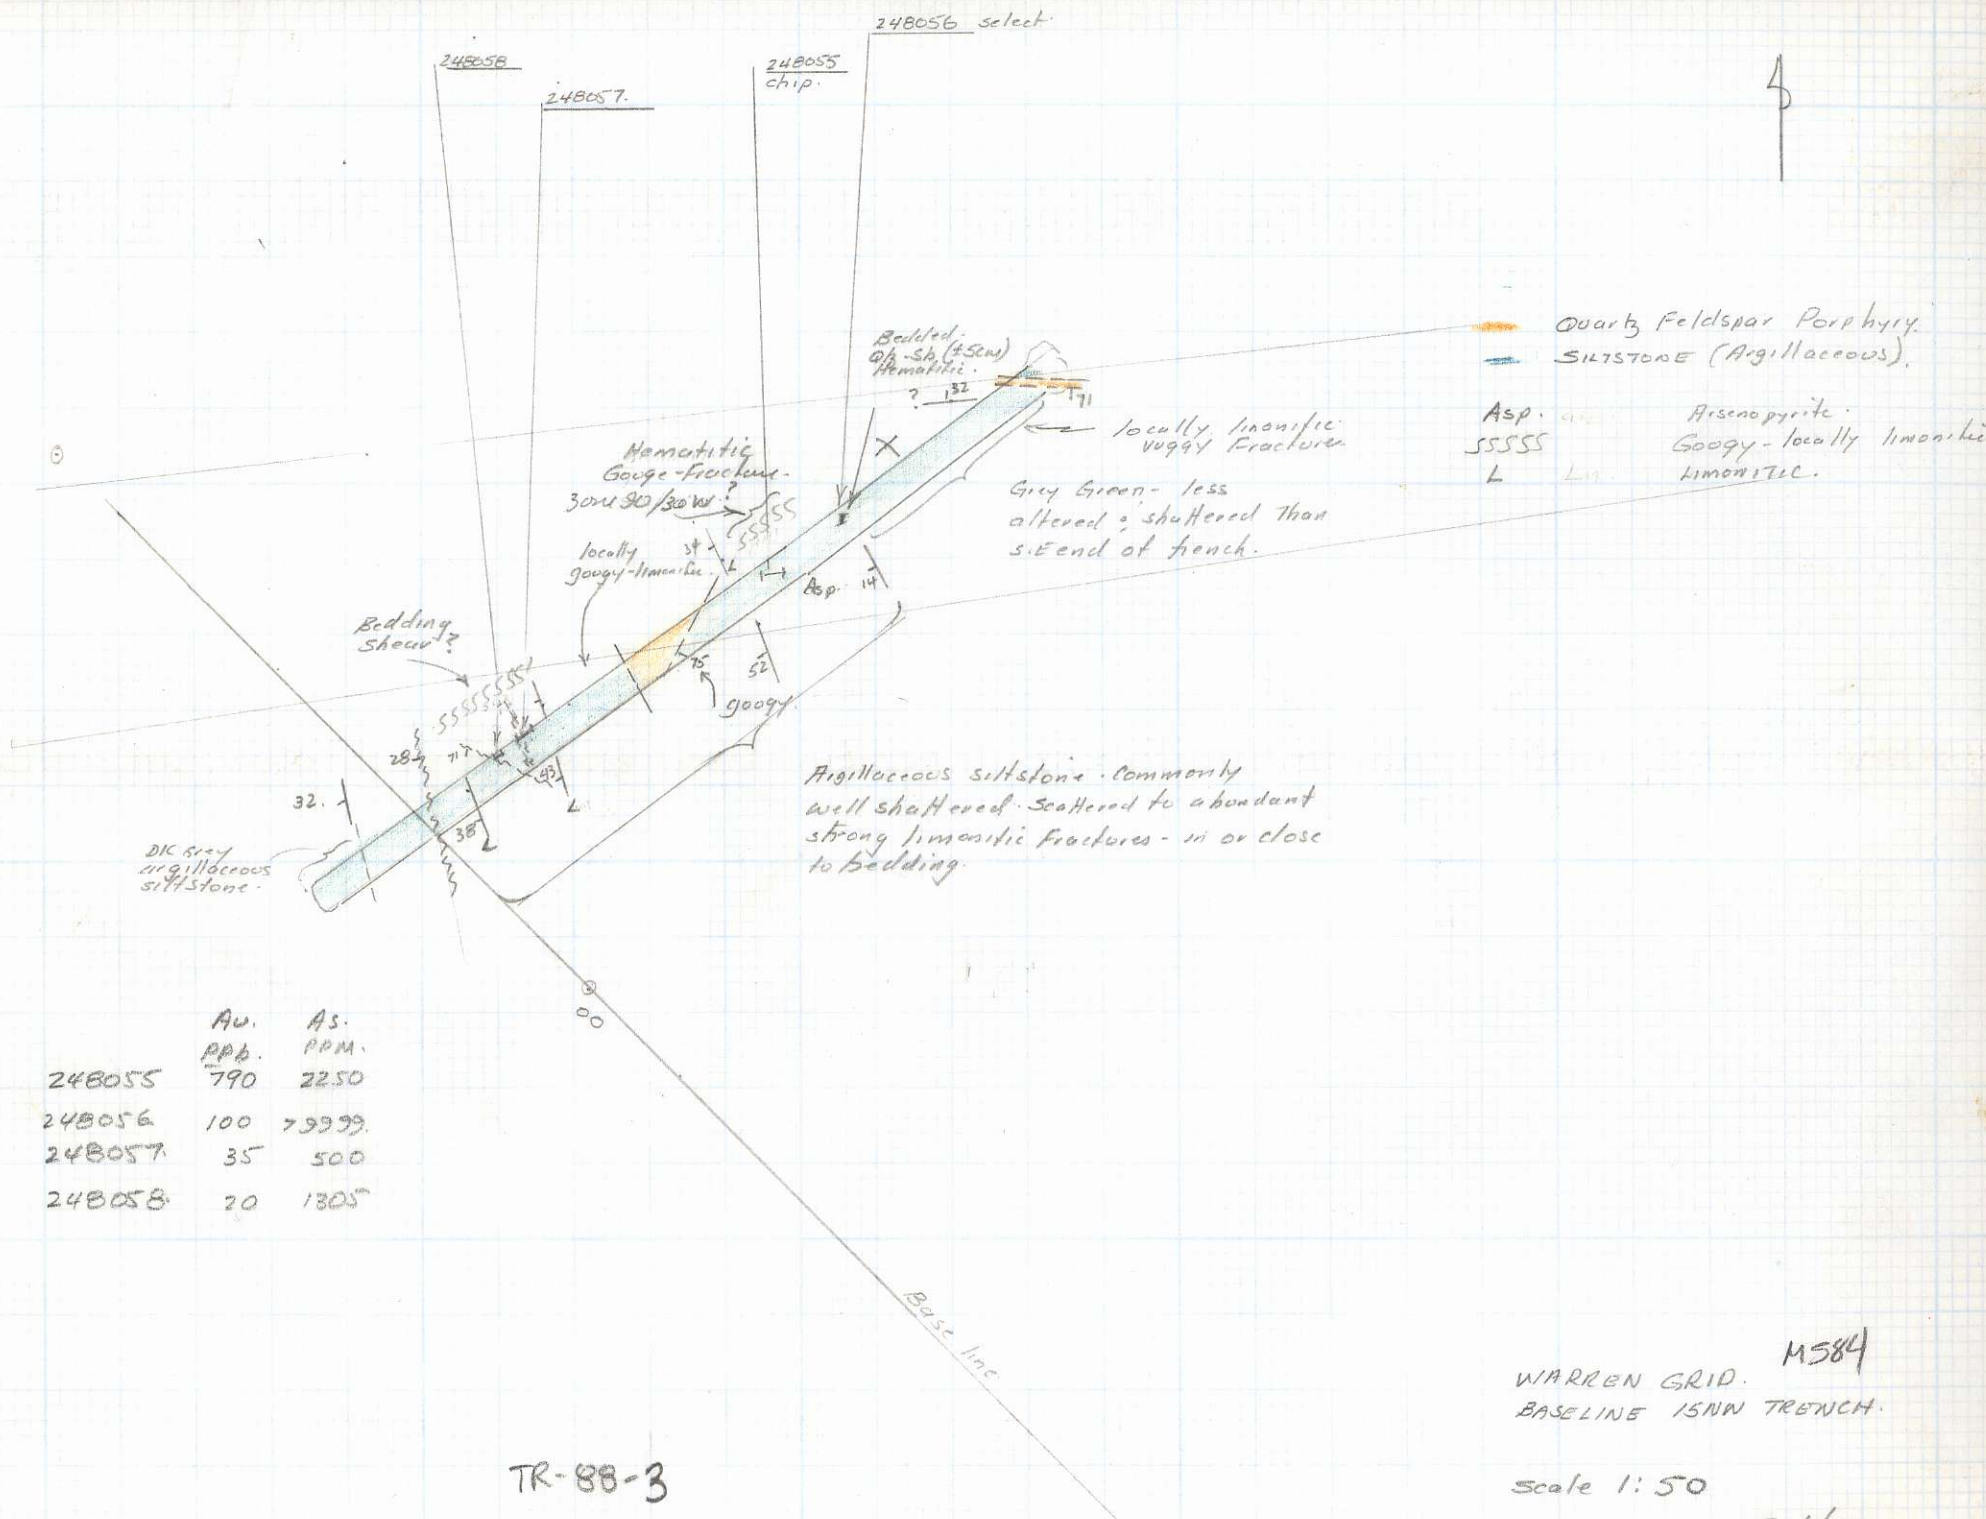 248056 select.
248058
248055
chip.
248057.
Bedded
Qtz-Sb (±5cm)
Hematitic.
? 32
71
Quartz Feldspar Porphyry.
SILTSTONE (Argillaceous).
Asp. Arsenopyrite.
SSSSS Googy - locally limonitic
L LIMONITIC.
locally limonitic
vuggy Fractures
Hematitic
Gouge-Fracture
Zone 90/30W ?
SSSSS
Grey Green - less
altered & shattered Than
S.E end of trench.
locally
googy-limonitic.
34
L
Asp.
14
Bedding
Shear?
75
52
googy.
SSSSSSSS
28
71
43
L
32.
38
L
DK Grey
argillaceous
siltstone.
Argillaceous siltstone. Commonly
well shattered. Scattered to abundant
strong limonitic fractures - in or close
to bedding.
00
Au. As.
PPb. PPM.
248055 790 2250
248056 100 >9999.
248057. 35 500
248058. 20 1305
Base line
M584
WARREN GRID.
BASELINE 15NW TRENCH.
TR-88-3
Scale 1:50